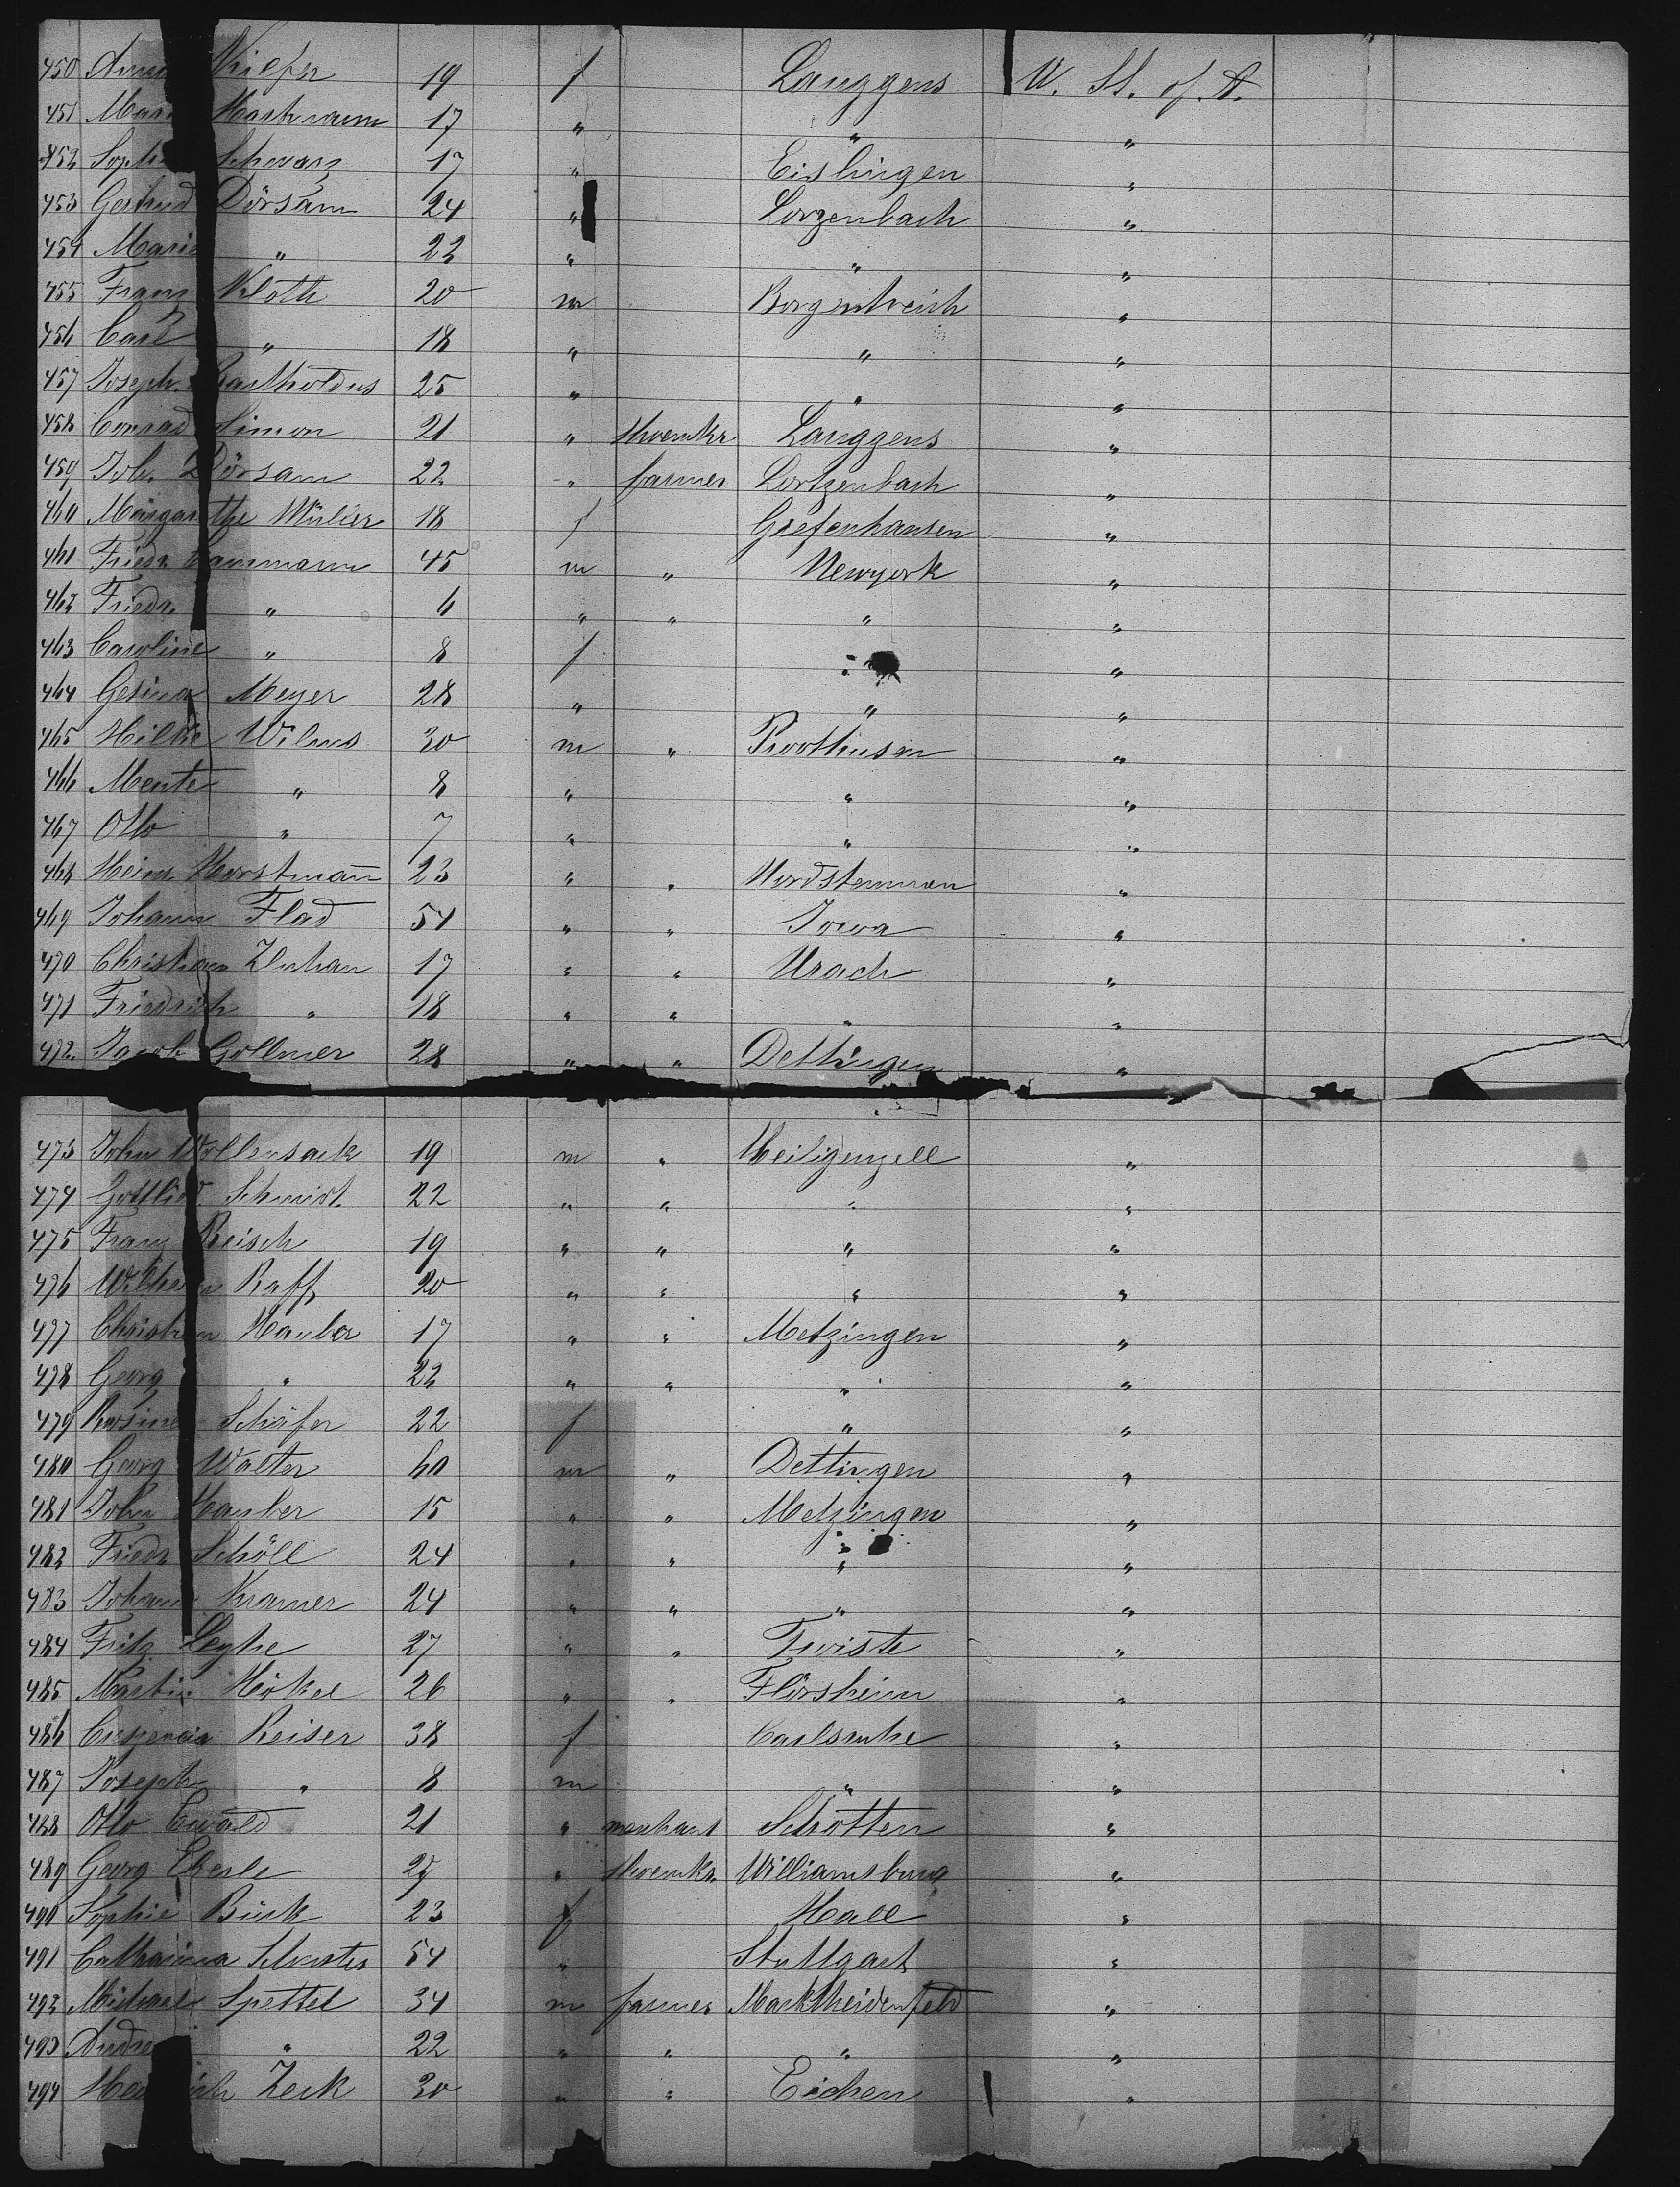 450 Kiefer 19 f Langgens U. St. of A.
451 17 " " "
452 Schwarz 17 " Eislingen "
453 Dörsam 24 " Lorzenbach "
454 Marie " 22 " " "
455 Franz Kloth 20 m Borgentreich "
456 Carl " 18 " " "
457 Joseph Bartholdus 25 " " "
458 Conrad Simon 21 " shoemkr Langgens "
459 Joh. Dörsam 22 " farmer Lortzenbach "
460 Margarethe Müller 18 f Grefenhausen "
461 Friedr. 45 m " Newyork "
462 Friedr. " 6 " " " "
463 Caroline " 8 f " "
464 Gesina Meyer 28 " " "
465 Wilms 30 m " "
466 Mente " 8 " " "
467 Otto " 7 " " "
468 Heinr. Horstmann 23 " " Nordstemmen "
469 Johann Flad 51 " " Iowa "
470 Christian 17 " " Urach "
471 Friedrich " 18 " " " "
472. Jacob Gollmer 28 " " Dettingen "
473 John Wollensack 19 m " Heiligenzell "
474 Gottlieb Schmidt 22 " " " "
475 Franz Reisch 19 " " " "
476 Wilhelm Raff 20 " " " "
477 Christian Hauber 17 " " Metzingen "
478 Georg " 22 " " " "
479 Rosine Schäfer 22 f " "
480 Georg Walter 60 m " Dettingen "
481 John Hauber 15 " " Metzingen "
482 Friedr Schöll 24 " " " "
483 Johann Kramer 24 " " " "
484 Fritz Leyhe 27 " " Twiste "
485 Martin Höckel 26 " " Flörsheim "
486 Reiser 38 f Carlsruhe "
487 Joseph " 8 m " "
488 Otto Ewald 21 " merchant Schotten "
489 Georg Eberle " shoemkr. Williamsburg "
490 Sophie Bück 23 f Hall "
491 Catharina 54 " Stuttgart "
492 Michael Spettel 34 m farmer Marktheidenfeld "
493 " 22 " " " "
494 Heinrich Zeck 30 " " Eichen "